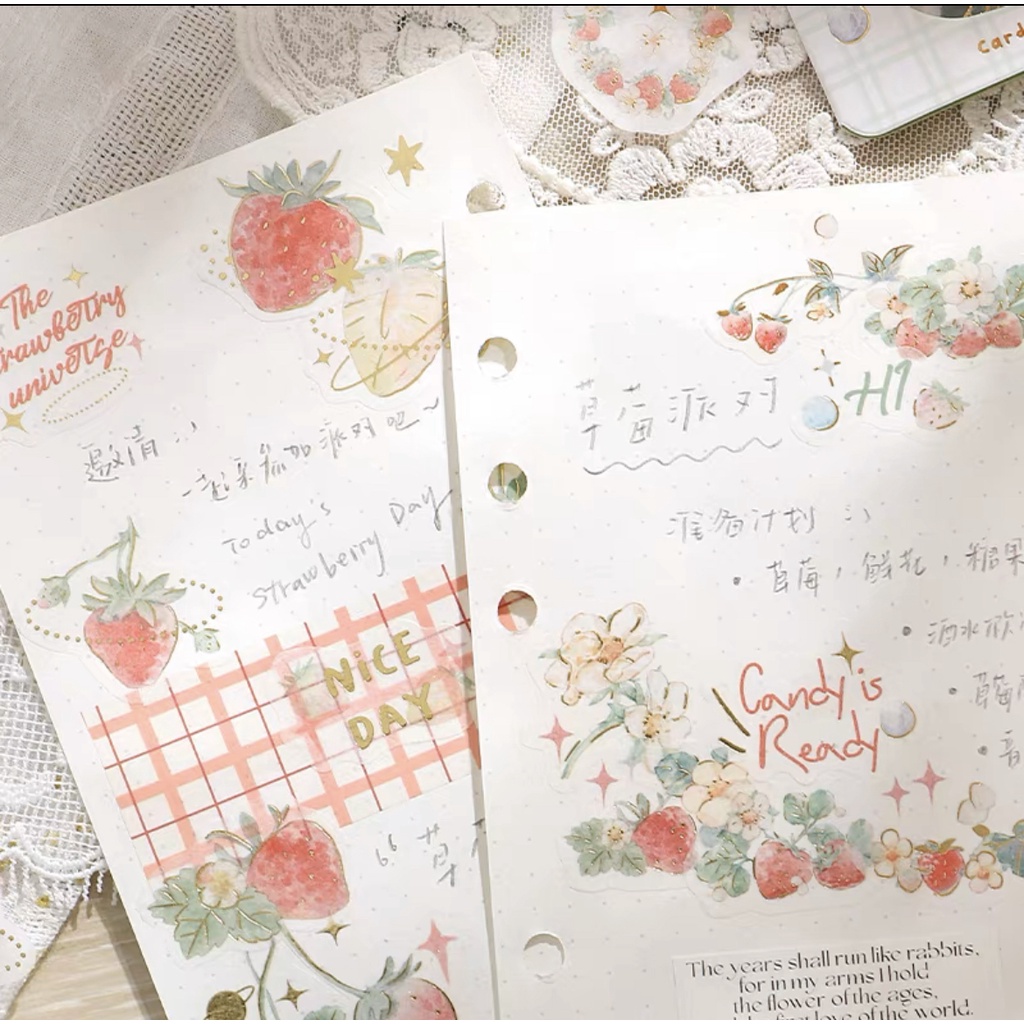 card
The
universe
邀请 :)
一起来参加派对吧~
Today's
Strawberry Day
NiCE
DAY
6.6 草
HI
草莓派对
准备计划 :)
• 草莓，鲜花，糖果
• 酒水饮
• 草莓
• 音
Candy is
Ready
The years shall run like rabbits,
for in my arms I hold
the flower of the ages,
first love of the world.